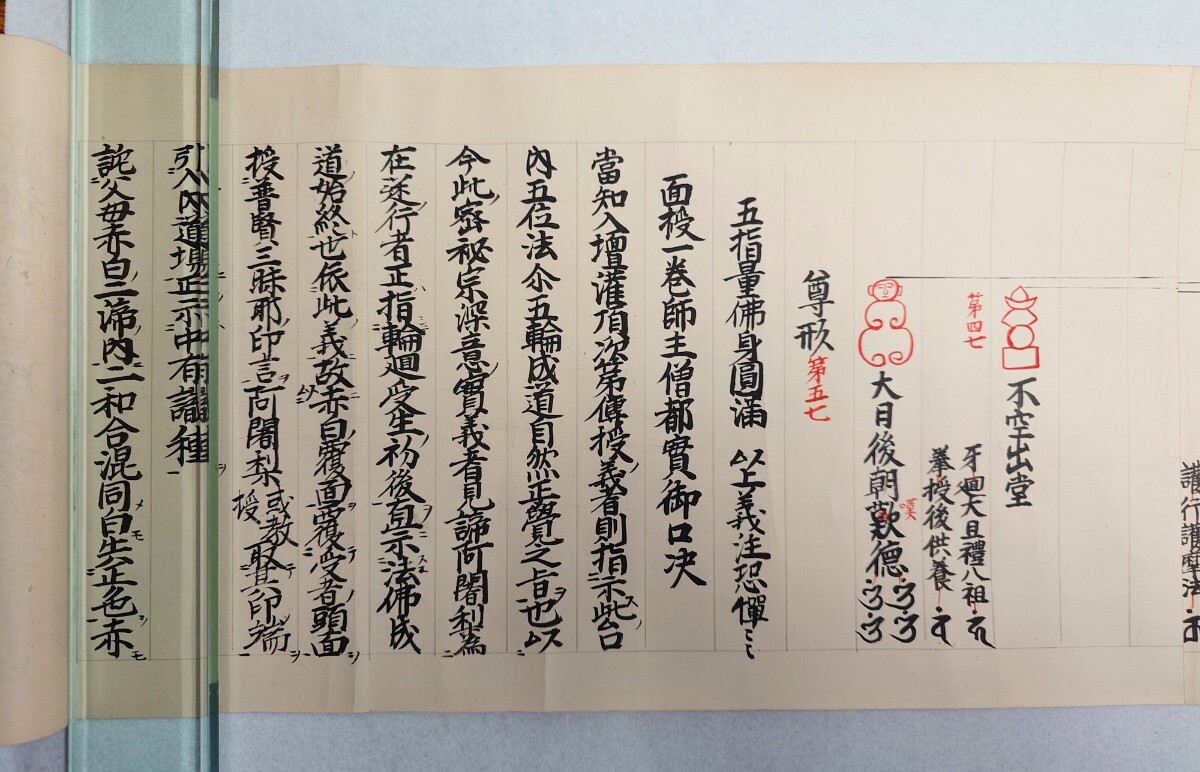 護行護摩法
第四七
不空出堂
牙廻大旦禮八祖
拳授後供養
大日後朝歎德
嘆
尊形 第五七
五指量佛身圓滿 以上義注恐憚〻〻
面授一卷師主僧都實御口决
當知入壇灌頂次第傳授義者則指示此台
內五位法尒五輪成道自然正覺之旨也以
今此密祕宗深意實義者見諦阿闍梨為
在迷行者正指輪廻受生初後直示法佛成
道始終也依此義故赤白覆面覆受者頭面
授普賢三昧耶印言阿闍梨或教授取其印端
引入內道場正示中有識種
詫父母赤白二渧內二和合混同白出正色赤